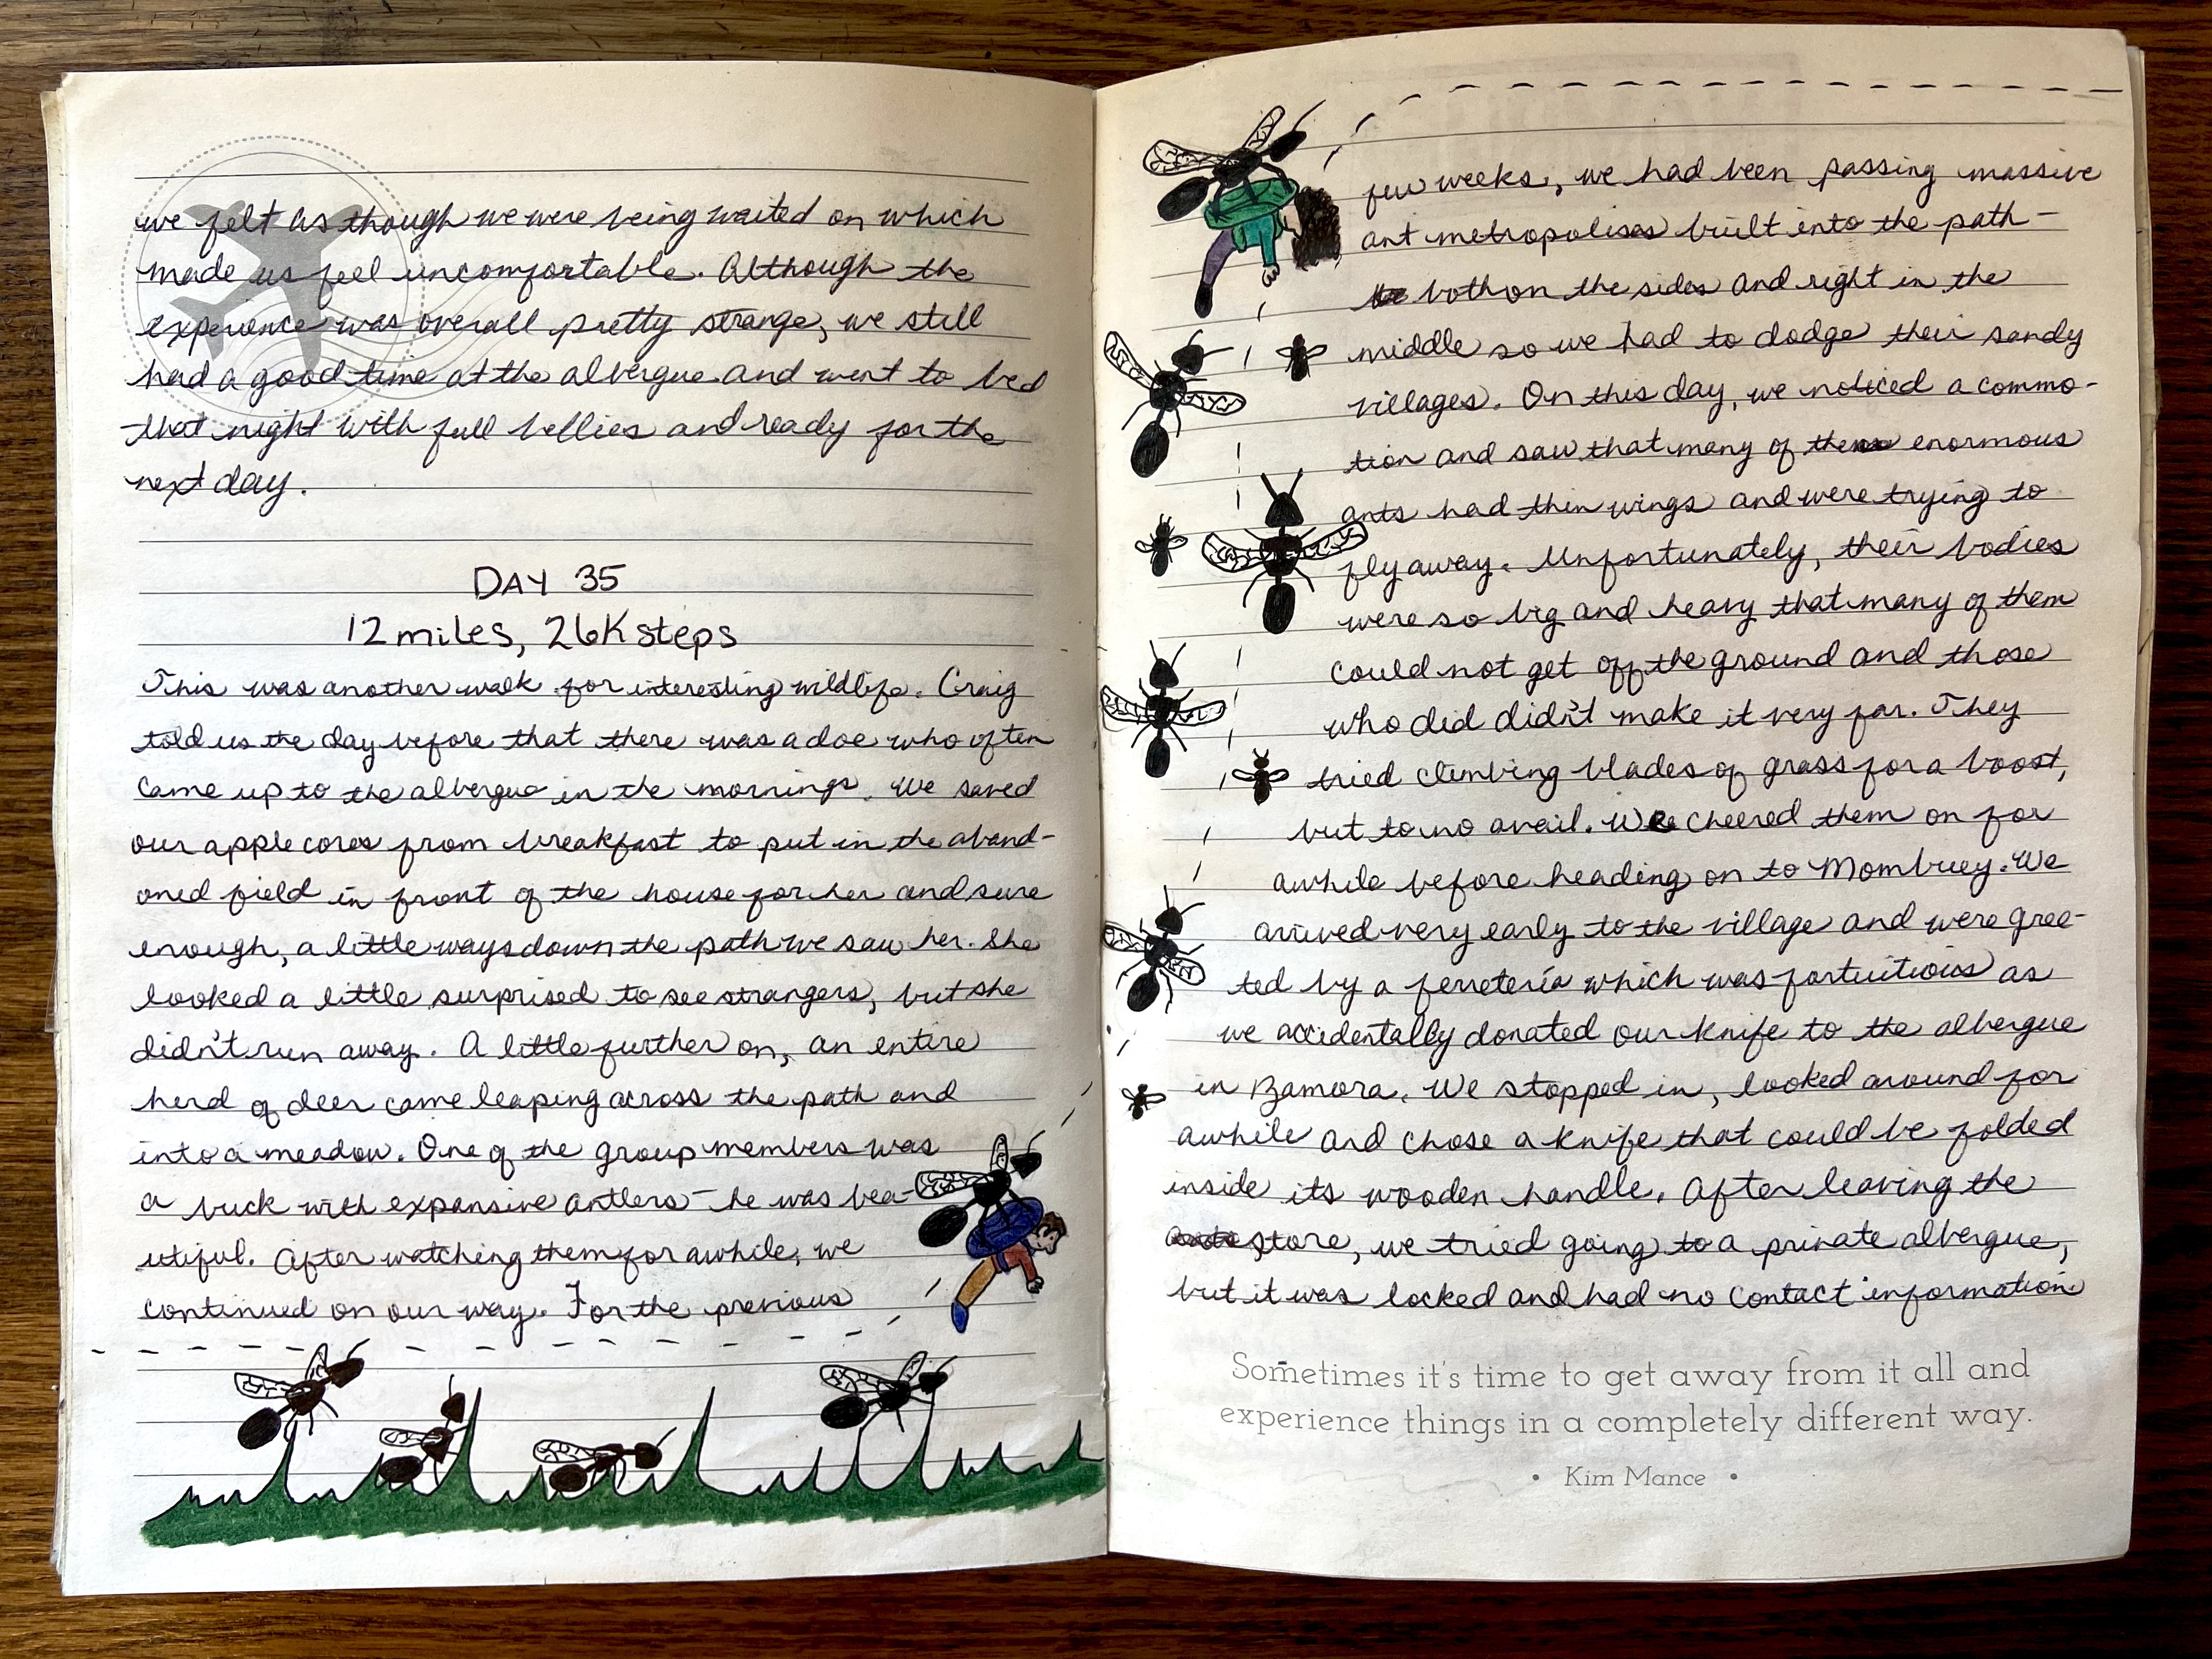 we felt as though we were being waited on which
made us feel uncomfortable. Although the
experience was overall pretty strange, we still
had a good time at the albergue and went to bed
that night with full bellies and ready for the
next day.
DAY 35
12 miles, 26K steps
This was another walk for interesting wildlife. Craig
told us the day before that there was a doe who often
came up to the albergue in the mornings. We saved
our apple cores from breakfast to put in the aband-
oned field in front of the house for her and sure
enough, a little ways down the path we saw her. She
looked a little surprised to see strangers, but she
didn't run away. A little further on, an entire
herd of deer came leaping across the path and
into a meadow. One of the group members was
a buck with expansive antlers - he was bea-
utiful. After watching them for awhile, we
continued on our way. For the previous
few weeks, we had been passing massive
ant metropolises built into the path -
both on the sides and right in the
middle so we had to dodge their sandy
villages. On this day, we noticed a commo-
tion and saw that many of these enormous
ants had thin wings and were trying to
fly away. Unfortunately, their bodies
were so big and heavy that many of them
could not get off the ground and those
who did didn't make it very far. They
tried climbing blades of grass for a boost,
but to no avail. We cheered them on for
awhile before heading on to Mombuey. We
arrived very early to the village and were gree-
ted by a ferretería which was fortuitious as
we accidentally donated our knife to the albergue
in Zamora. We stopped in, looked around for
awhile and chose a knife that could be folded
inside its wooden handle. After leaving the
store, we tried going to a private albergue,
but it was locked and had no contact information
Sometimes it's time to get away from it all and
experience things in a completely different way.
• Kim Mance •